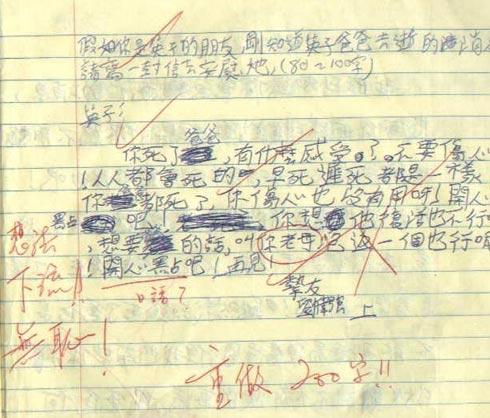 假如你是英子的朋友,剛知道英子爸爸去逝的消
請寫一封信去安慰她,(80~100字)
英子:
爸爸
你死了,有什麼感受。不要傷心
!人人都會死的,早死遲死都是一樣
你都死了,你傷心也沒有用呀!開心
點吧,你想他復活也不行
,想要的話,叫你老母返一個也行
!開心點吧!再見
摯友
上
想法
下流!!
無恥!
口語?
重做 200字!!